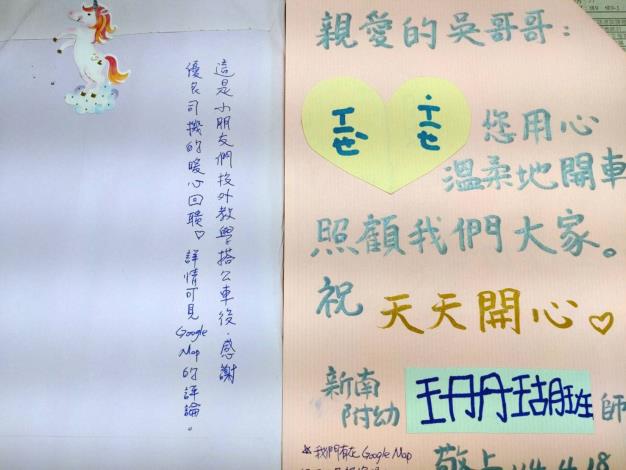 這是小朋友們校外教學搭公車後,感謝
優良司機的暖心回饋♡ 詳情可見 Google Map 的評論。
親愛的吳哥哥:
您用心
溫柔地開車
照顧我們大家。
祝 天天開心♡
新南
附幼 珊瑚班 師
*我們有在 Google Map
敬上